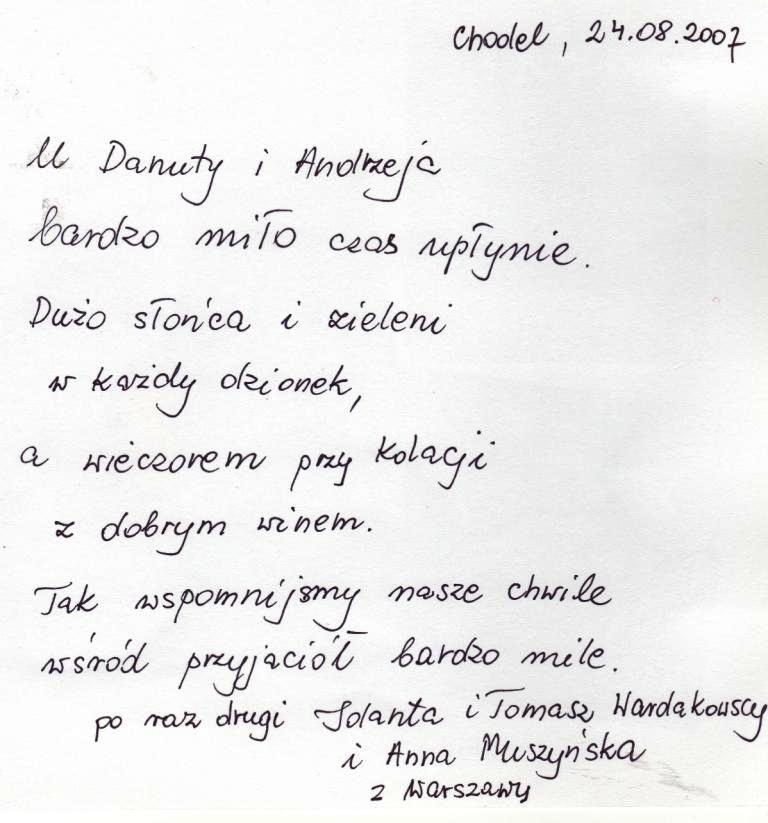 Chodel, 24.08.2007
U Danuty i Andrzeja
bardzo miło czas upłynie.
Dużo słońca i zieleni
w każdy dzionek,
a wieczorem przy kolacji
z dobrym winem.
Tak wspomnijsmy nasze chwile
wśród przyjaciół bardzo mile.
po raz drugi Jolanta i Tomasz Wardąkowscy
i Anna Muszyńska
z Warszawy